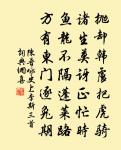 拋卻韓盧把虎騎
諸生莫訝正忙時
魚龍不隔蓬萊路
方有東門逐兔期
陳普 詠史上 李斯三首
詞典網喜